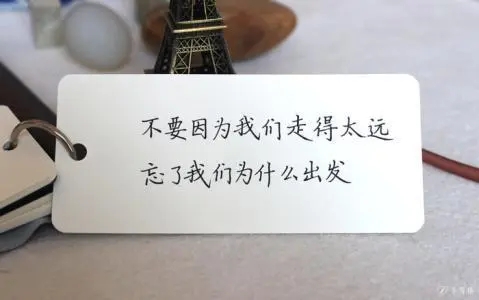 不要因为我们走得太远
忘了我们为什么出发